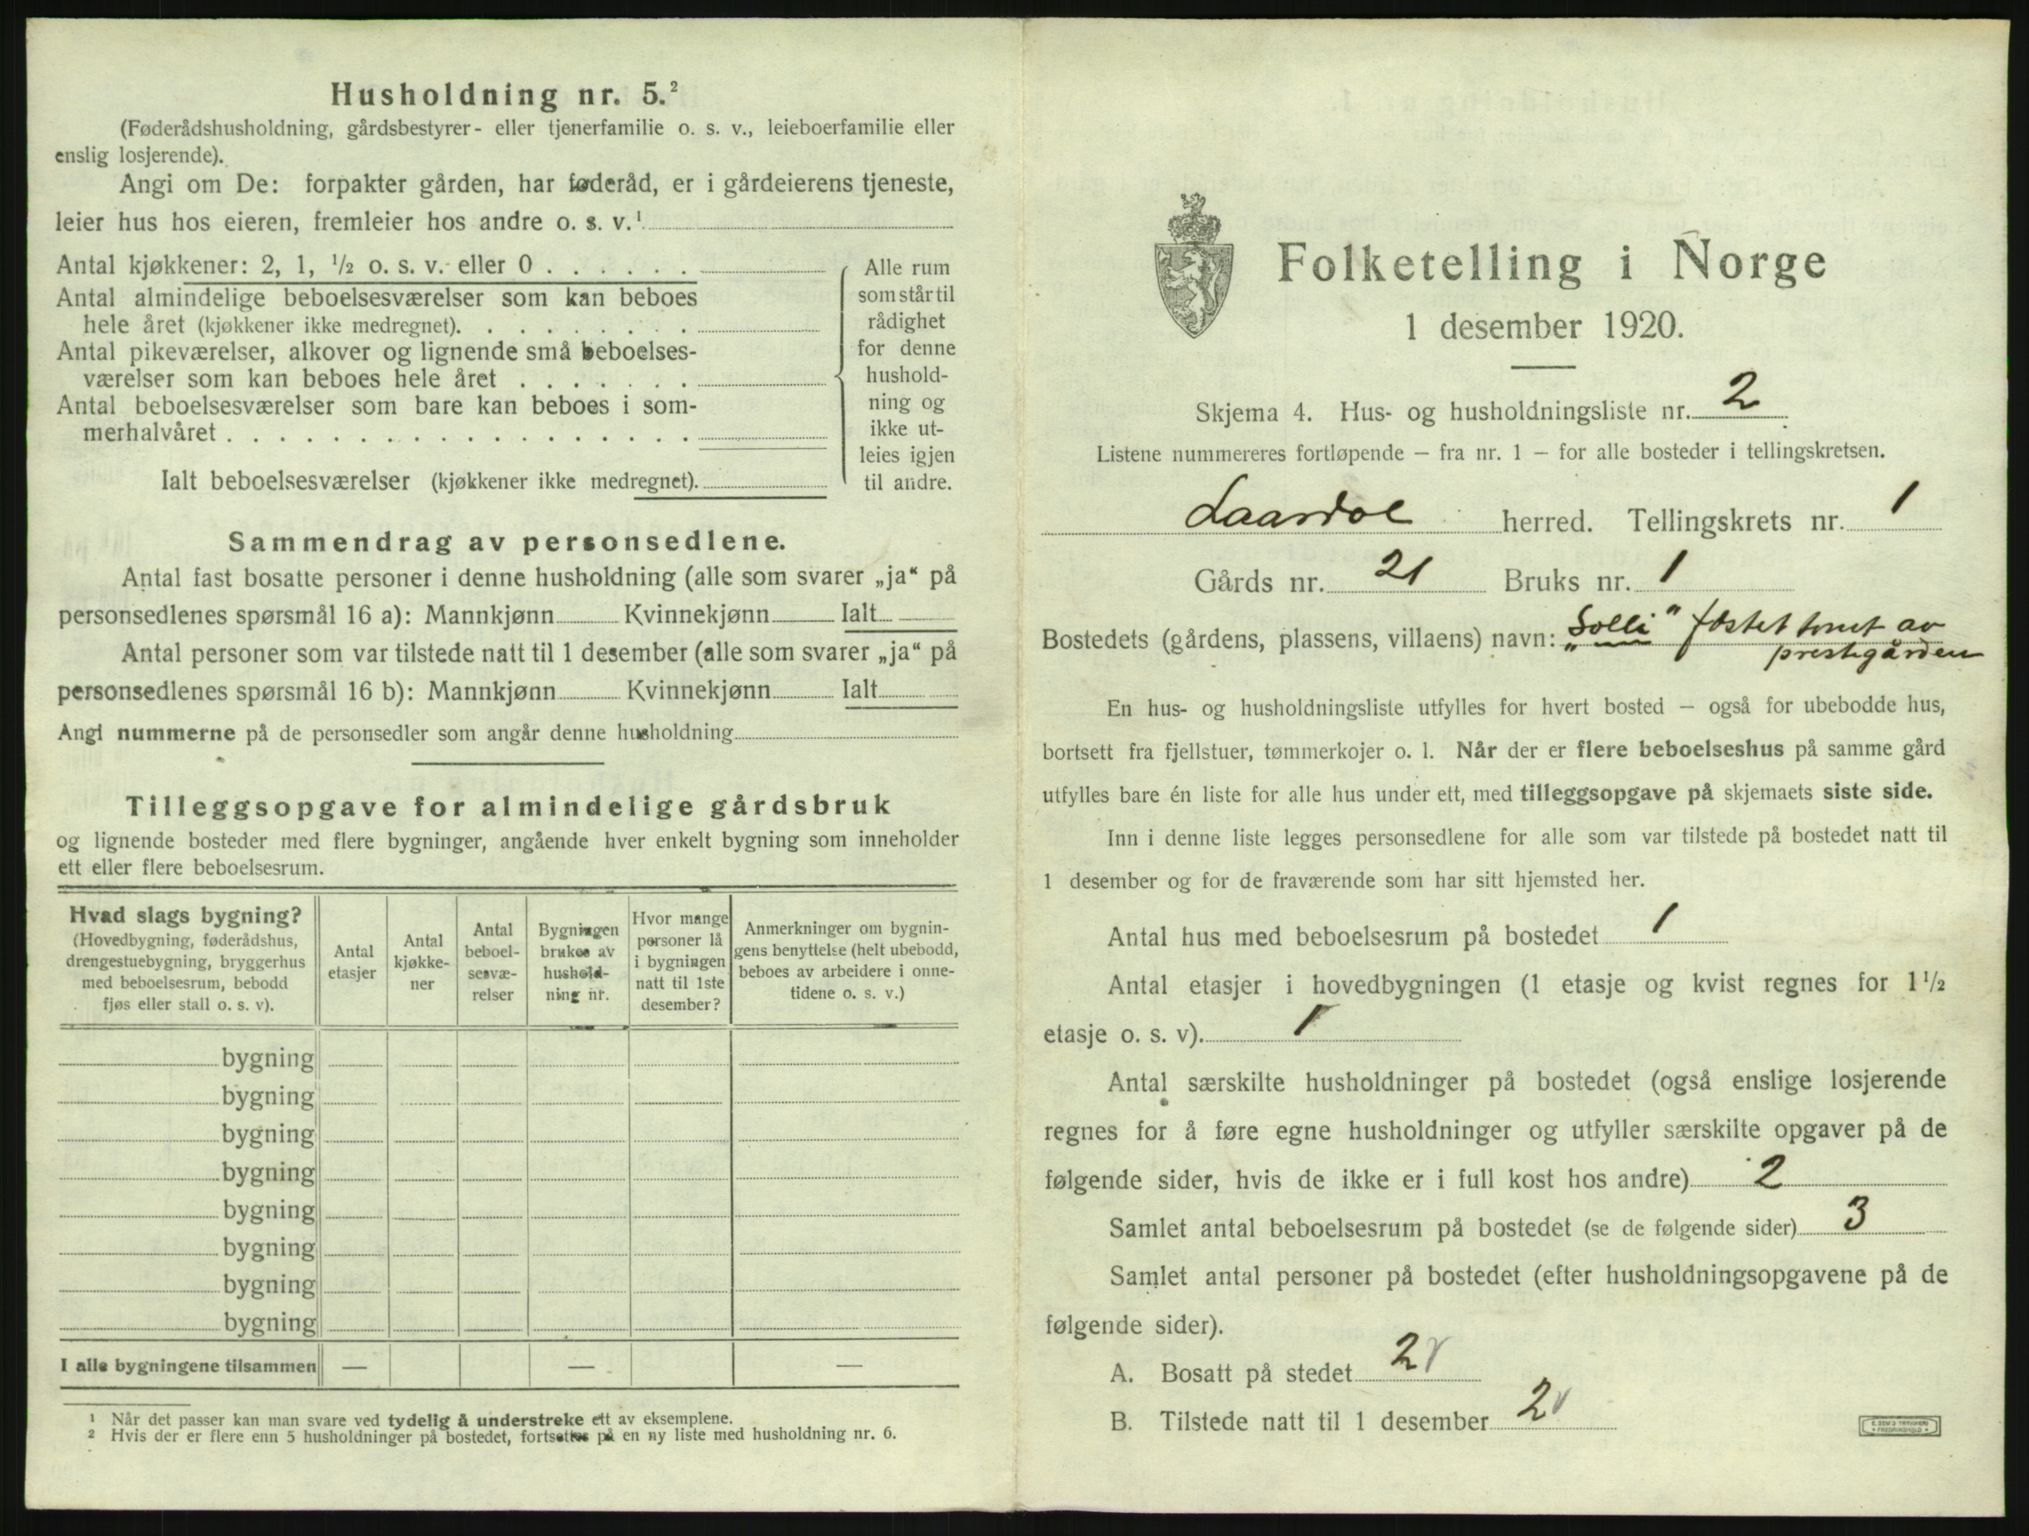 Husholdning nr. 5.²
(Føderådshusholdning, gårdsbestyrer- eller tjenerfamilie o. s. v., leieboerfamilie eller
enslig losjerende).
Angi om De: forpakter gården, har føderåd, er i gårdeierens tjeneste,
leier hus hos eieren, fremleier hos andre o. s. v.¹
Antal kjøkkener: 2, 1, ½ o. s. v. eller 0 . . . . . .
Antal almindelige beboelsesværelser som kan beboes
hele året (kjøkkener ikke medregnet). . . . . . . . .
Antal pikeværelser, alkover og lignende små beboelses-
værelser som kan beboes hele året . . . . . . .
Antal beboelsesværelser som bare kan beboes i som-
merhalvåret . . . . . . . . . . . . . . . . . .
Ialt beboelsesværelser (kjøkkener ikke medregnet).
Alle rum
som står til
rådighet
for denne
hushold-
ning og
ikke ut-
leies igjen
til andre.
Sammendrag av personsedlene.
Antal fast bosatte personer i denne husholdning (alle som svarer „ja“ på
personsedlenes spørsmål 16 a): Mannkjønn Kvinnekjønn Ialt
Antal personer som var tilstede natt til 1 desember (alle som svarer „ja“ på
personsedlenes spørsmål 16 b): Mannkjønn Kvinnekjønn Ialt
Angi nummerne på de personsedler som angår denne husholdning
Tilleggsopgave for almindelige gårdsbruk
og lignende bosteder med flere bygninger, angående hver enkelt bygning som inneholder
ett eller flere beboelsesrum.
Hvad slags bygning?
(Hovedbygning, føderådshus,
drengestuebygning, bryggerhus
med beboelsesrum, bebodd
fjøs eller stall o. s. v).
Antal
etasjer
Antal
kjøkke-
ner
Antal
beboel-
sesvæ-
relser
Bygningen
brukes av
hushold-
ning nr.
Hvor mange
personer lå
i bygningen
natt til 1ste
desember?
Anmerkninger om bygnin-
gens benyttelse (helt ubebodd,
beboes av arbeidere i onne-
tidene o. s. v.)
bygning
bygning
bygning
bygning
bygning
bygning
bygning
bygning
I alle bygningene tilsammen — — —
¹ Når det passer kan man svare ved tydelig å understreke ett av eksemplene.
² Hvis der er flere enn 5 husholdninger på bostedet, fortsettes på en ny liste med husholdning nr. 6.
Folketelling i Norge
1 desember 1920.
Skjema 4. Hus- og husholdningsliste nr. 2
Listene nummereres fortløpende — fra nr. 1 — for alle bosteder i tellingskretsen.
Laardal herred. Tellingskrets nr. 1
Gårds nr. 21 Bruks nr. 1
Bostedets (gårdens, plassens, villaens) navn: „Solli“ fæstet tomt av
prestegården
En hus- og husholdningsliste utfylles for hvert bosted — også for ubebodde hus,
bortsett fra fjellstuer, tømmerkojer o. l. Når der er flere beboelseshus på samme gård
utfylles bare én liste for alle hus under ett, med tilleggsopgave på skjemaets siste side.
Inn i denne liste legges personsedlene for alle som var tilstede på bostedet natt til
1 desember og for de fraværende som har sitt hjemsted her.
Antal hus med beboelsesrum på bostedet 1
Antal etasjer i hovedbygningen (1 etasje og kvist regnes for 1½
etasje o. s. v). 1
Antal særskilte husholdninger på bostedet (også enslige losjerende
regnes for å føre egne husholdninger og utfyller særskilte opgaver på de
følgende sider, hvis de ikke er i full kost hos andre) 2
Samlet antal beboelsesrum på bostedet (se de følgende sider) 3
Samlet antal personer på bostedet (efter husholdningsopgavene på de
følgende sider).
A. Bosatt på stedet 2
B. Tilstede natt til 1 desember 2